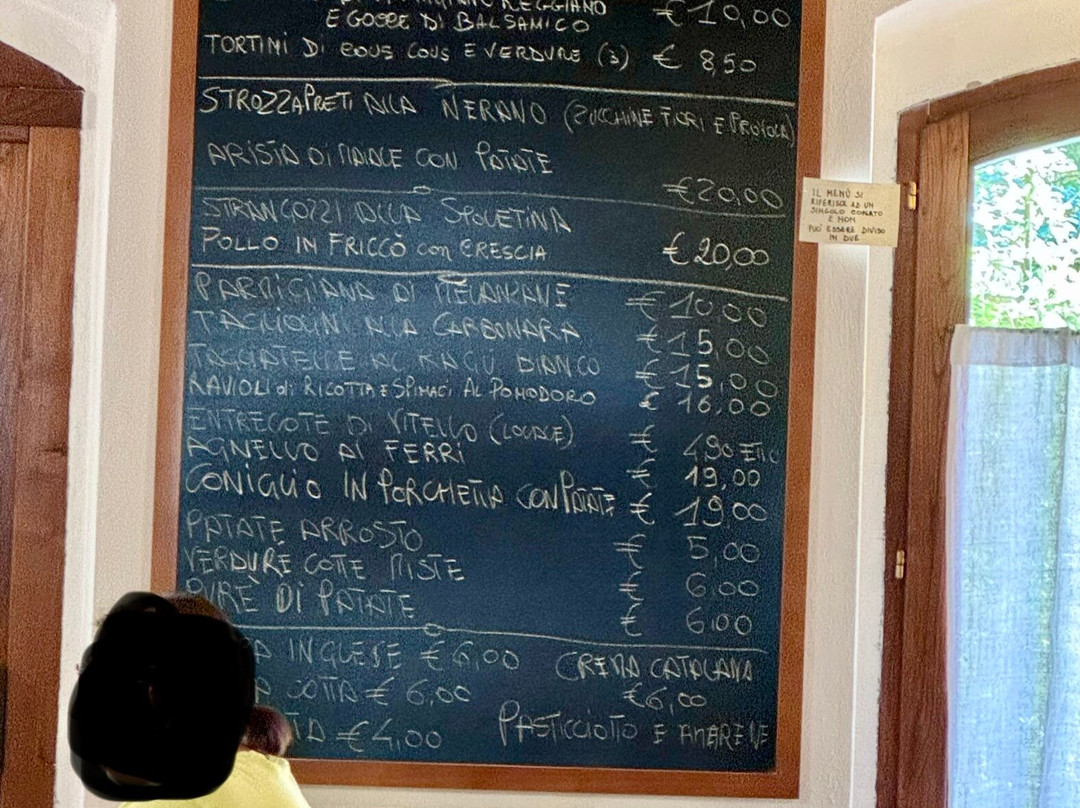 REGGIANO € 10,00
E GOCCE DI BALSAMICO
TORTINI DI COUS COUS E VERDURE (3) € 8,50
STROZZAPRETI ALLA NERANO (ZUCCHINE FIORI E PROVOLA)
ARISTA DI MAIALE CON PATATE
€20,00
STRANGOZZI ALLA SPOLETINA
POLLO IN FRICCÒ con CRESCIA €20,00
PARMIGIANA DI MELANZANE € 10,00
TAGLIOLINI ALLA CARBONARA € 15,00
TAGLIATELLE AL RAGÙ BIANCO € 15,00
RAVIOLI di RICOTTA E SPINACI AL POMODORO € 16,00
ENTRECOTE DI VITELLO (LOCALE) € 4,90 ETTO
AGNELLO AI FERRI € 19,00
CONIGLIO IN PORCHETTA CON PATATE € 19,00
PATATE ARROSTO € 5,00
VERDURE COTTE MISTE € 6,00
PURÈ DI PATATE € 6,00
INGLESE € 6,00 CREMA CATALANA
COTTA € 6,00 €6,00
€ 4,00 PASTICCIOTTO E AMARENE
IL MENÙ SI
RIFERISCE AD UN
SINGOLO COPERTO
E NON
PUÒ ESSERE DIVISO
IN DUE